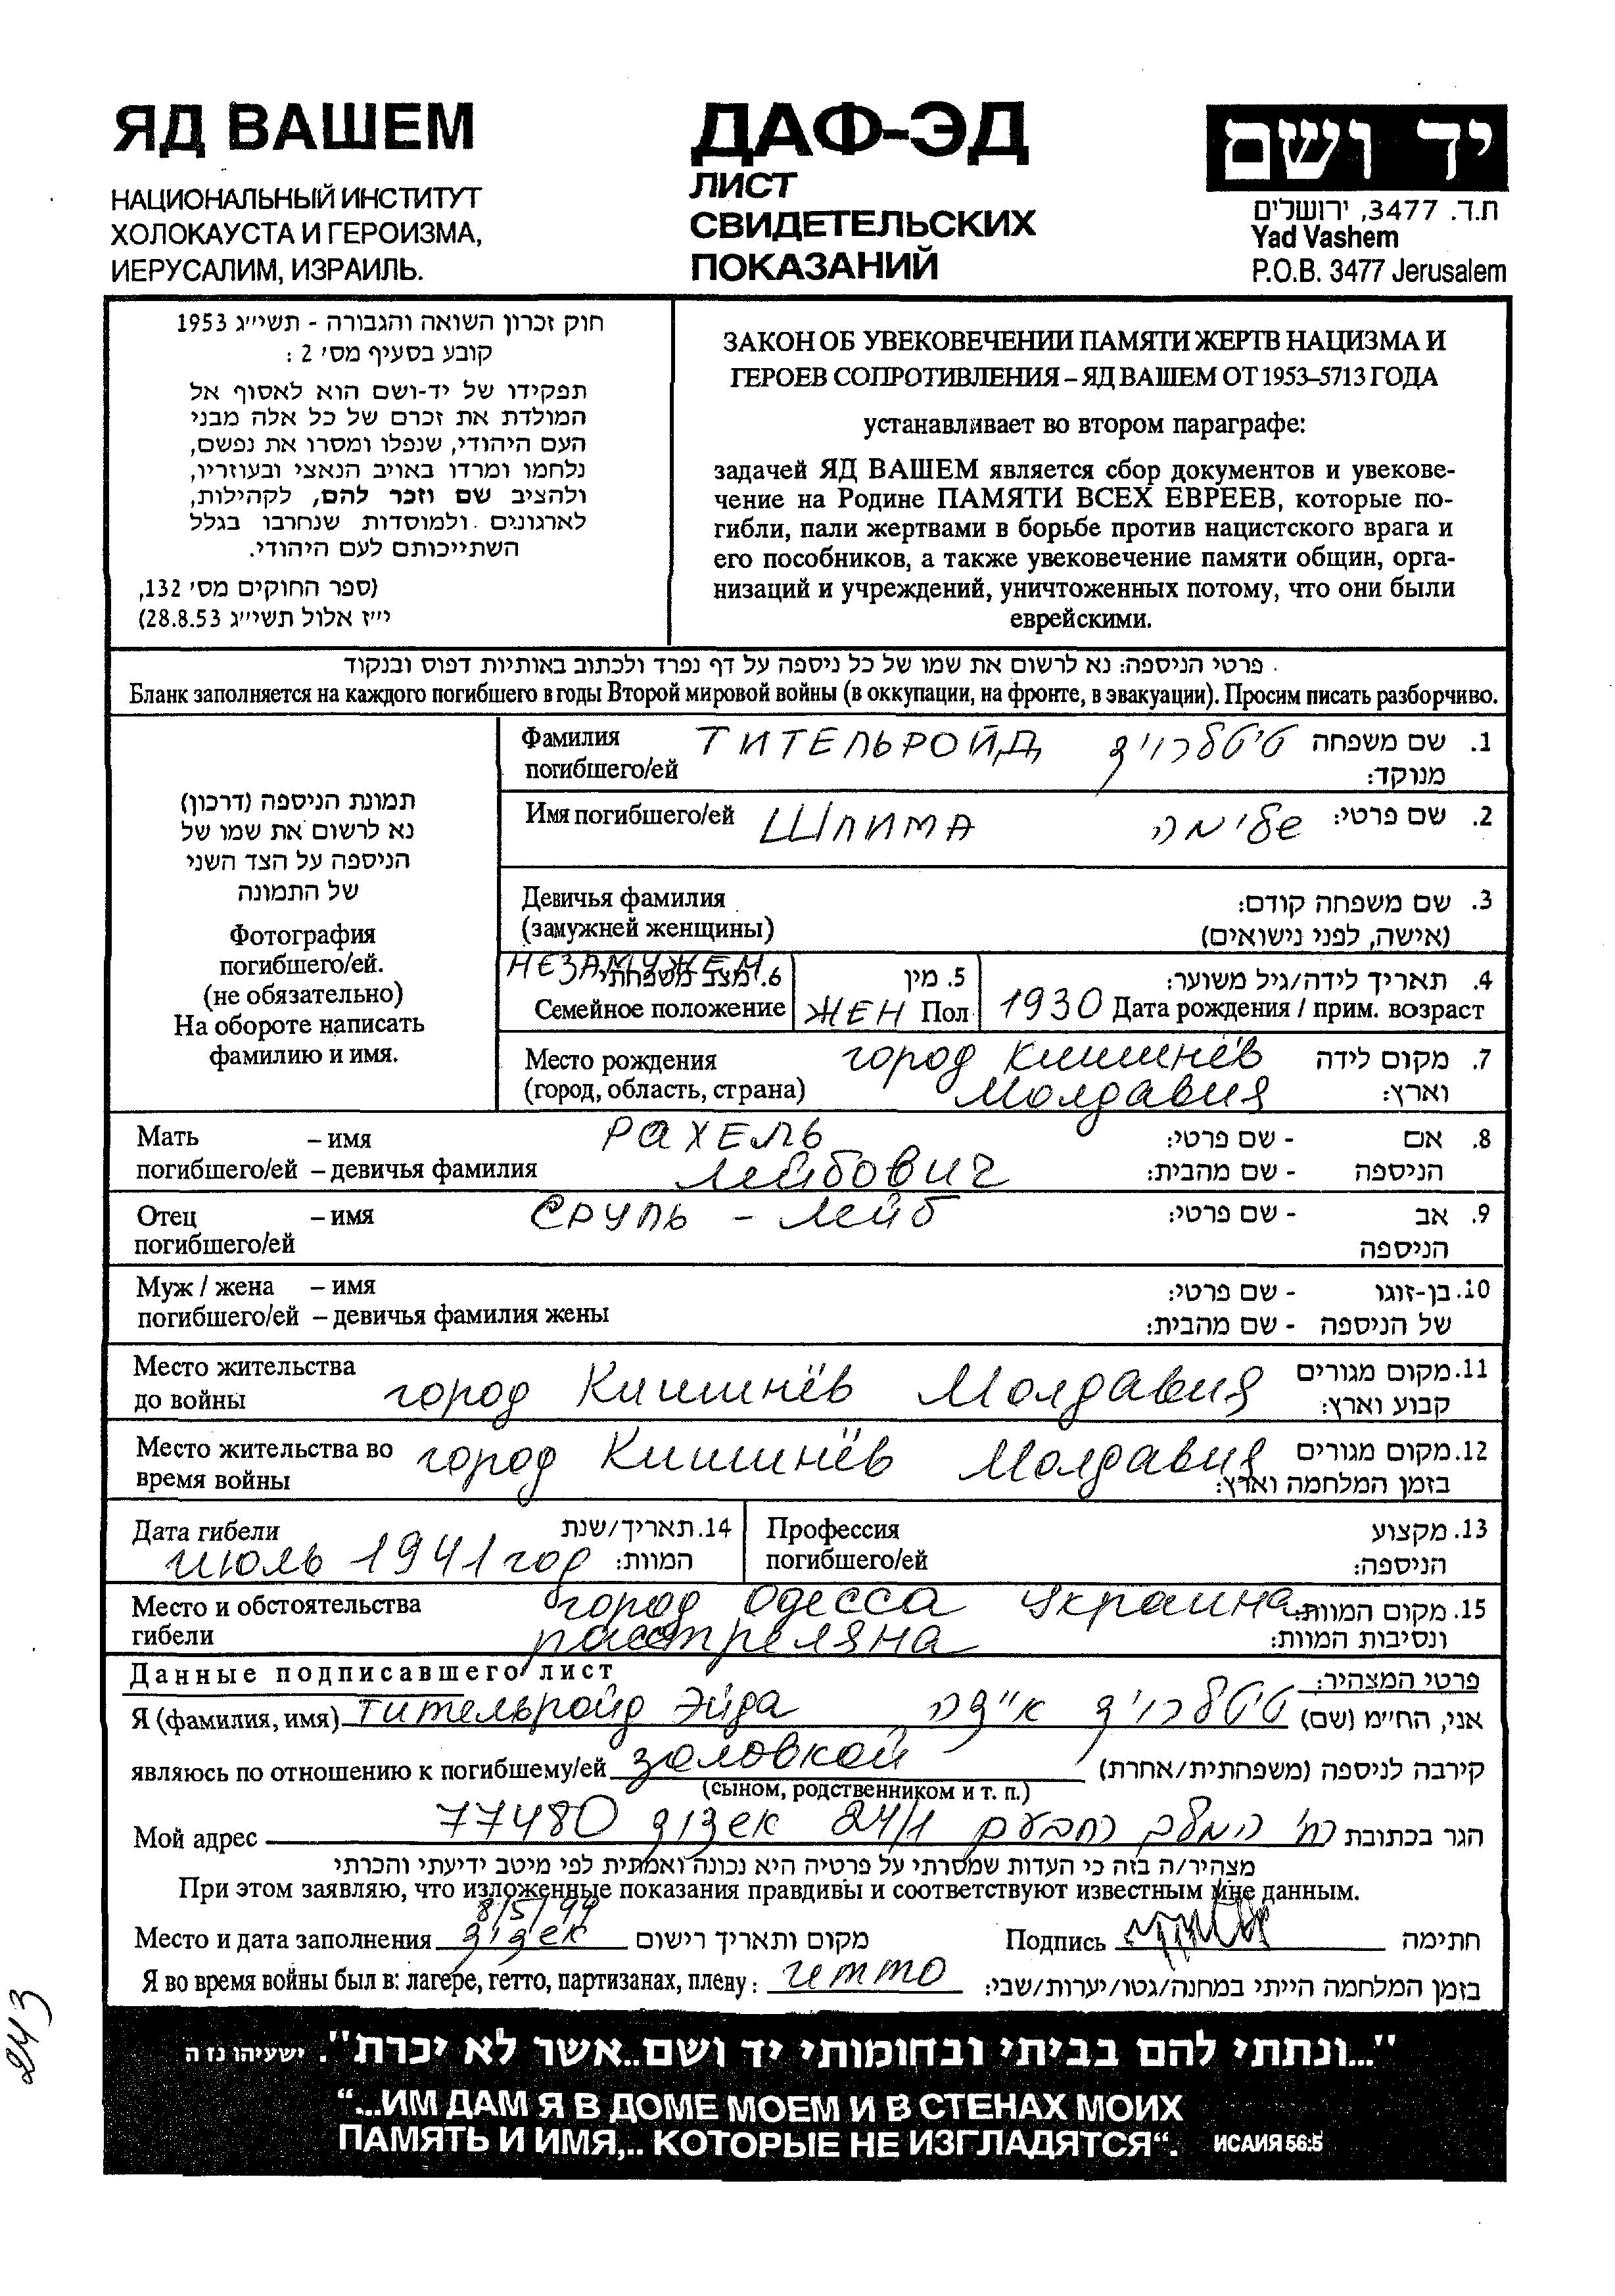 ЯД ВАШЕМ
НАЦИОНАЛЬНЫЙ ИНСТИТУТ
ХОЛОКАУСТА И ГЕРОИЗМА,
ИЕРУСАЛИМ, ИЗРАИЛЬ.
ДАФ-ЭД
ЛИСТ
СВИДЕТЕЛЬСКИХ
ПОКАЗАНИЙ
יד ושם
ת.ד. 3477, ירושלים
Yad Vashem
P.O.B. 3477 Jerusalem
חוק זכרון השואה והגבורה - תשי״ג 1953
קובע בסעיף מס׳ 2 :
תפקידו של יד-ושם הוא לאסוף אל
המולדת את זכרם של כל אלה מבני
העם היהודי, שנפלו ומסרו את נפשם,
נלחמו ומרדו באויב הנאצי ובעוזריו,
ולהציב שם וזכר להם, לקהילות,
לארגונים ולמוסדות שנחרבו בגלל
השתייכותם לעם היהודי.
(ספר החוקים מס׳ 132,
י״ז אלול תשי״ג 28.8.53)
ЗАКОН ОБ УВЕКОВЕЧЕНИИ ПАМЯТИ ЖЕРТВ НАЦИЗМА И
ГЕРОЕВ СОПРОТИВЛЕНИЯ – ЯД ВАШЕМ ОТ 1953–5713 ГОДА
устанавливает во втором параграфе:
задачей ЯД ВАШЕМ является сбор документов и увекове-
чение на Родине ПАМЯТИ ВСЕХ ЕВРЕЕВ, которые по-
гибли, пали жертвами в борьбе против нацистского врага и
его пособников, а также увековечение памяти общин, орга-
низаций и учреждений, уничтоженных потому, что они были
еврейскими.
פרטי הניספה: נא לרשום את שמו של כל ניספה על דף נפרד ולכתוב באותיות דפוס ובנקוד
Бланк заполняется на каждого погибшего в годы Второй мировой войны (в оккупации, на фронте, в эвакуации). Просим писать разборчиво.
תמונת הניספה (דרכון)
נא לרשום את שמו של
הניספה על הצד השני
של התמונה
Фотография
погибшего/ей.
(не обязательно)
На обороте написать
фамилию и имя.
Фамилия ТИТЕЛЬРОЙД טיטלרויד 1. שם משפחה
погибшего/ей מנוקד:
Имя погибшего/ей ШЛИМА שלימה 2. שם פרטי:
Девичья фамилия 3. שם משפחה קודם:
(замужней женщины) (אישה, לפני נישואים)
НЕЗАМУЖЕМ 6. מצב משפחתי 5. מין 4. תאריך לידה/גיל משוער:
Семейное положение ЖЕН Пол 1930 Дата рождения / прим. возраст
Место рождения город Кишинёв 7. מקום לידה
(город, область, страна) Молдавия וארץ:
Мать – имя РАХЕЛЬ - שם פרטי: 8. אם
погибшего/ей – девичья фамилия Лейбович - שם מהבית: הניספה
Отец – имя СРУЛЬ - Лейб - שם פרטי: 9. אב
погибшего/ей הניספה
Муж / жена – имя - שם פרטי: 10. בן-זוגו
погибшего/ей – девичья фамилия жены - שם מהבית: של הניספה
Место жительства город Кишинёв Молдавия 11. מקום מגורים
до войны קבוע וארץ:
Место жительства во город Кишинёв Молдавия 12. מקום מגורים
время войны בזמן המלחמה וארץ:
Дата гибели 14. תאריך/שנת Профессия 13. מקצוע
июль 1941 год המוות: погибшего/ей הניספה:
Место и обстоятельства город Одесса Украина 15. מקום המוות
гибели расстреляна ונסיבות המוות:
Данные подписавшего лист פרטי המצהיר:
Я (фамилия, имя) Тительройд Эйда טיטלרויד איידה אני, החי״מ (שם)
являюсь по отношению к погибшему/ей золовкой קירבה לניספה (משפחתית/אחרת)
(сыном, родственником и т. п.)
Мой адрес 77480 אשדוד 24/1 רח׳ המלך רחבעם הגר בכתובת
מצהיר/ה בזה כי העדות שמסרתי על פרטיה היא נכונה ואמתית לפי מיטב ידיעתי והכרתי
При этом заявляю, что изложенные показания правдивы и соответствуют известным мне данным.
8/5/99
Место и дата заполнения אשדוד מקום ותאריך רישום Подпись חתימה
Я во время войны был в: лагере, гетто, партизанах, плену: гетто בזמן המלחמה הייתי במחנה/גטו/יערות/שבי:
243
"...ונתתי להם בביתי ובחומותי יד ושם..אשר לא יכרת". ישעיהו נז ה
“...ИМ ДАМ Я В ДОМЕ МОЕМ И В СТЕНАХ МОИХ
ПАМЯТЬ И ИМЯ,.. КОТОРЫЕ НЕ ИЗГЛАДЯТСЯ“. ИСАИЯ 56:5